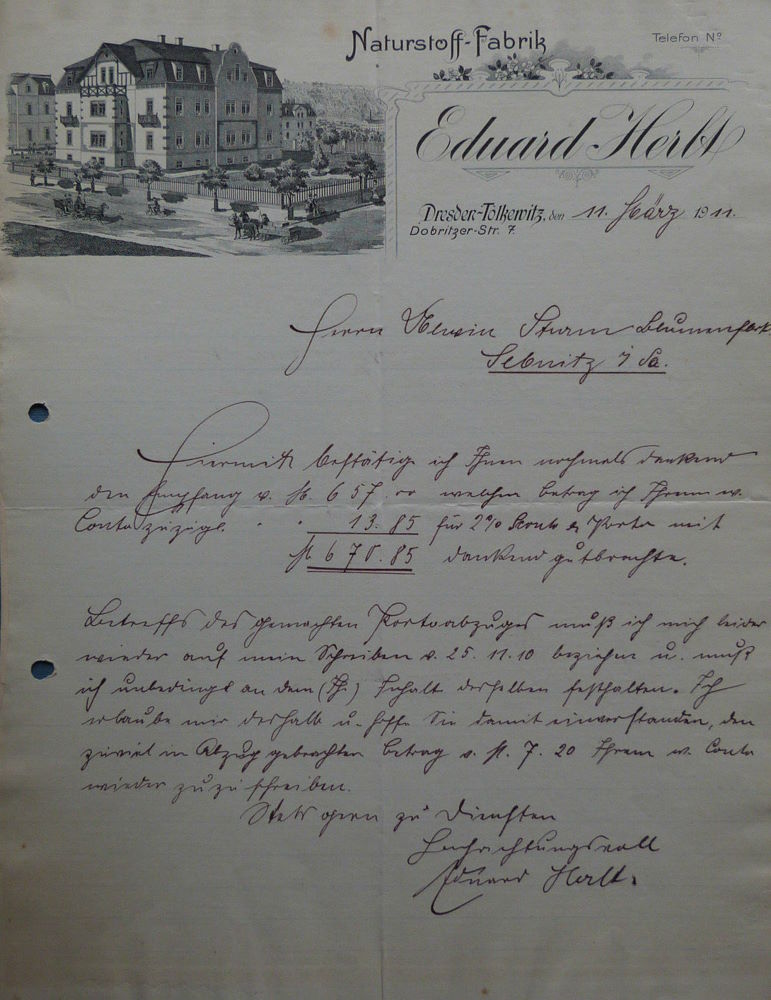 Naturstoff-Fabrik
Telefon Nº
Eduard Herbt
Dresden-Tolkewitz, den 11. März 1911.
Dobritzer-Str. 7.
Herrn Alwin Sturm Blumenfabr.
Sebnitz i/Sa.
Hiermit bestätige ich Ihnen nochmals dankend
den Empfang v. M. 657.00 welchen Betrag ich Ihrem w.
Conto zuzügl. " " 13.85 für 2% Sconto & Porto mit
M 670.85 dankend gutbrachte.
Betreffs des gemachten Portoabzuges muß ich mich leider
wieder auf mein Schreiben v. 25.11.10 beziehen u. muß
ich unbedingt an dem Inhalt desselben festhalten. Ich
erlaube mir deshalb u. hoffe Sie damit einverstanden, den
zuviel in Abzug gebrachten Betrag v. M. 7.20 Ihrem w. Conto
wieder zuzuschreiben.
Stets gern zu Diensten
Hochachtungsvoll
Eduard Herbt.